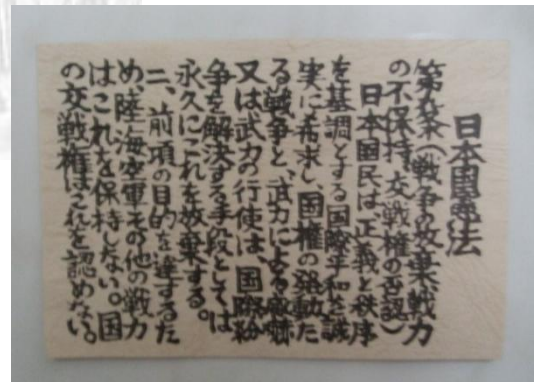 日本国憲法
第九条(戦争の放棄、戦力
の不保持、交戦権の否認)
日本国民は、正義と秩序
を基調とする国際平和を誠
実に希求し、国権の発動た
る戦争と、武力による威嚇
又は武力の行使は、国際紛
争を解決する手段としては
永久にこれを放棄する。
二、前項の目的を達するた
め、陸海空軍その他の戦力
はこれを保持しない。国
の交戦権はこれを認めない。